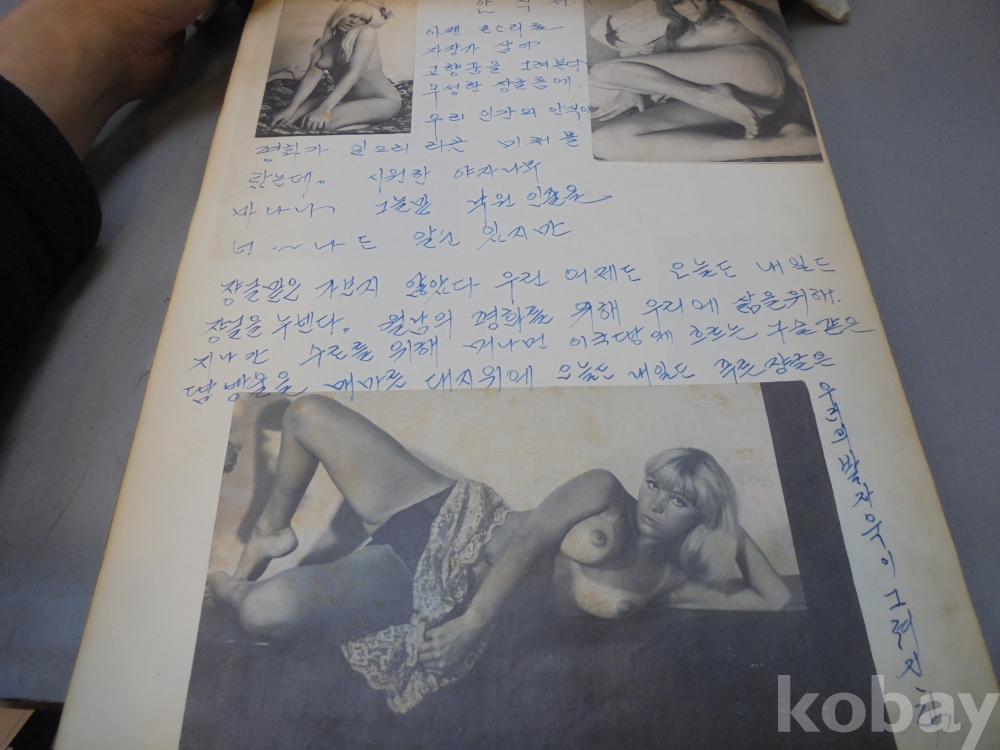 안 식 처.
이젠
자장가 삼아
고향꿈을 그려본다
무성한 정글틈에.
우리 인간의 안식이
평화가 있으리 라곤 미처 몰
랐는데. 시원한 야자나무
바나나가 그늘밑
너~나도 알고 있지만
쟝글만은 가보지 않았다 우린 어제도 오늘도 내일도
정글을 누벤다. 월남의 평화를 위해 우리에 삶을위해.
지나간 위해 머나먼 이국땅에 흐르는 구슬같은
땀방울을 메마른 대지위에 오늘도 내일도 푸른쟝글은
우리의발자욱이 그려지
kobay